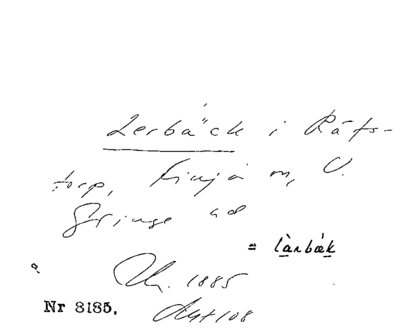 Lerbäck i Räfs-
torp, Finja sn, V.
Göinge hd
= làrbæk
Uh. 1885
Nr 8185.